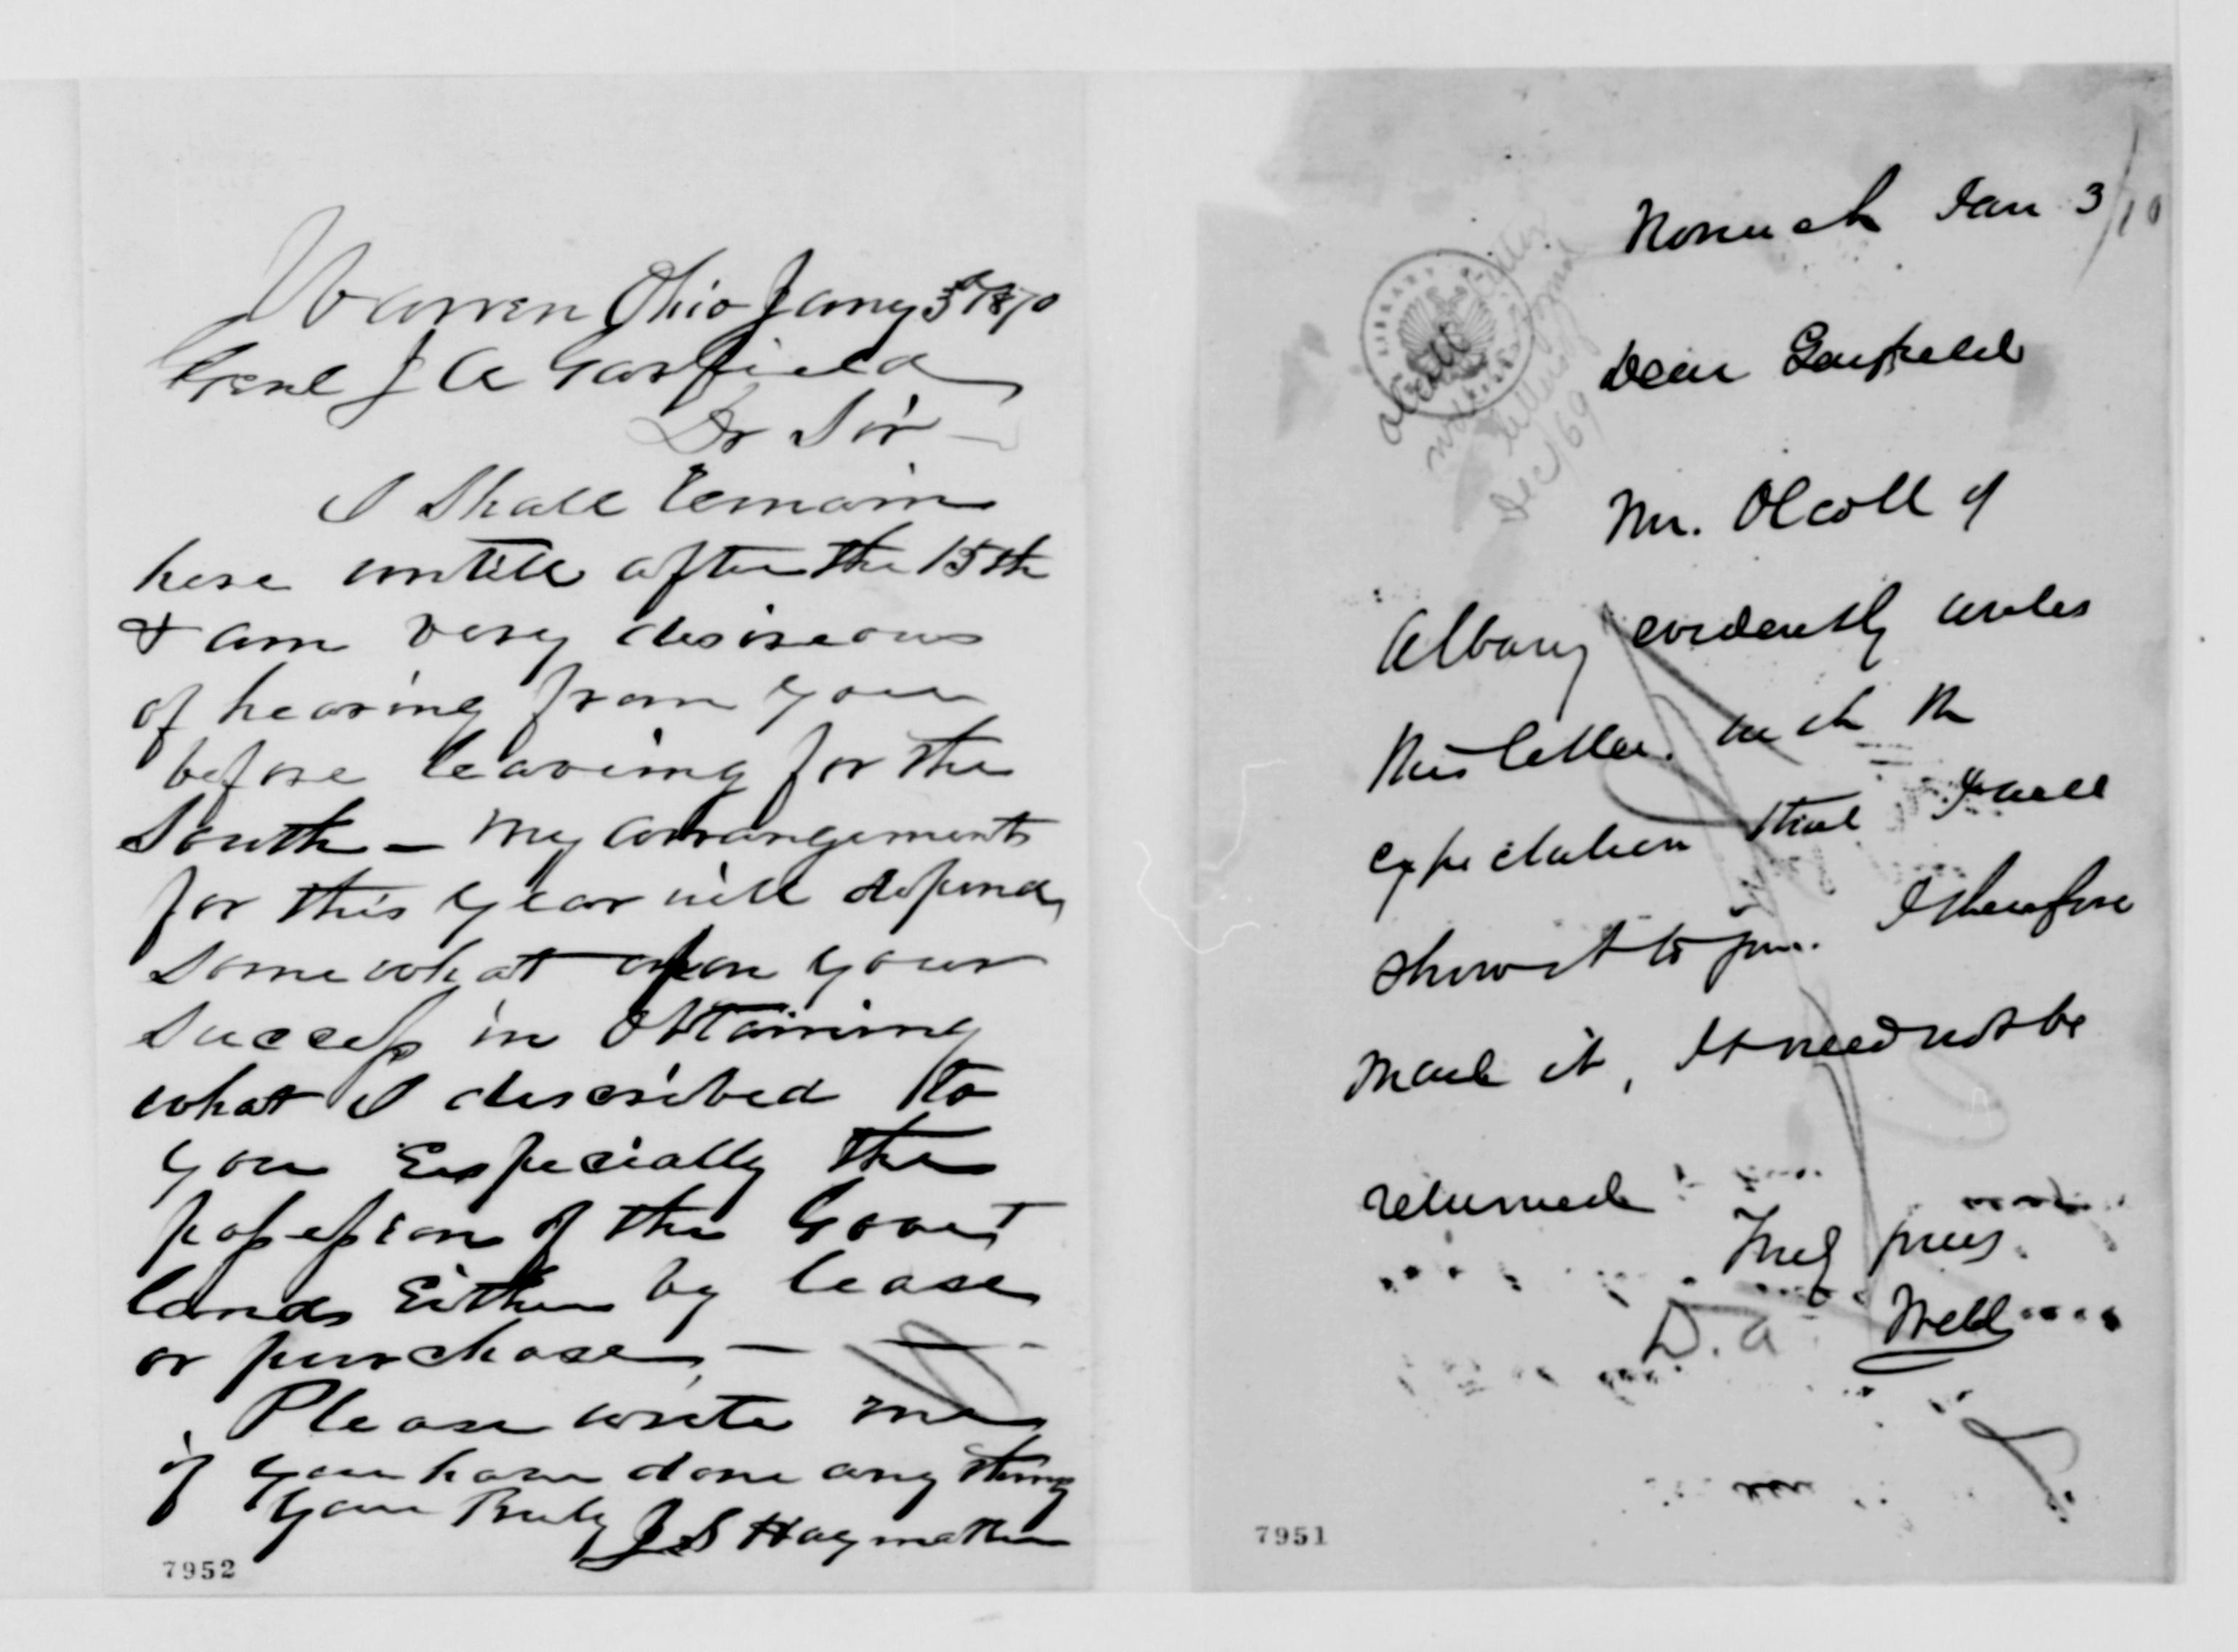 Warren Ohio Jany 3d 1870
Genl J A Garfield
Dr Sir
I Shall remain
here untill after the 15th
& am very desireous
of hearing from you
before leaveing for the
South - My arrangements
for this year will depend
somewhat upon your
success in obtaining
what I described to
you Especially the
possession of the Govet
lands Either by lease
or purchase, -
Please write me
if you have done any thing
Your Truly J S Haymaker
7952
Norwich Jan 3/70
Dear Garfield
Mr. Olcott of
Albany evidently writes
this letter with the
expectation that I will
show it to you. I therefore
mail it, It need not be
returned
Truly yours
D. A. Wells
Olcott
Dec/69
7951